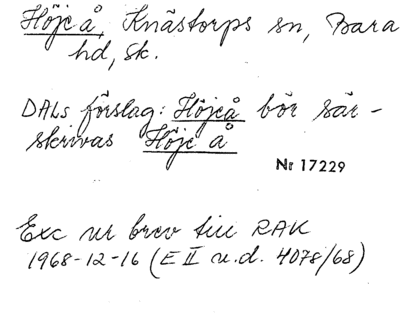 Höje å, Knästorps sn, Bara
hd, Sk.
DALs förslag: Höjeå bör sär-
skrivas Höje å
Nr 17229
Exc ur brev till RAK
1968-12-16 (E II u.d. 4078/68)